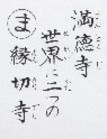 満徳寺
世界に二つの
ま 縁切寺